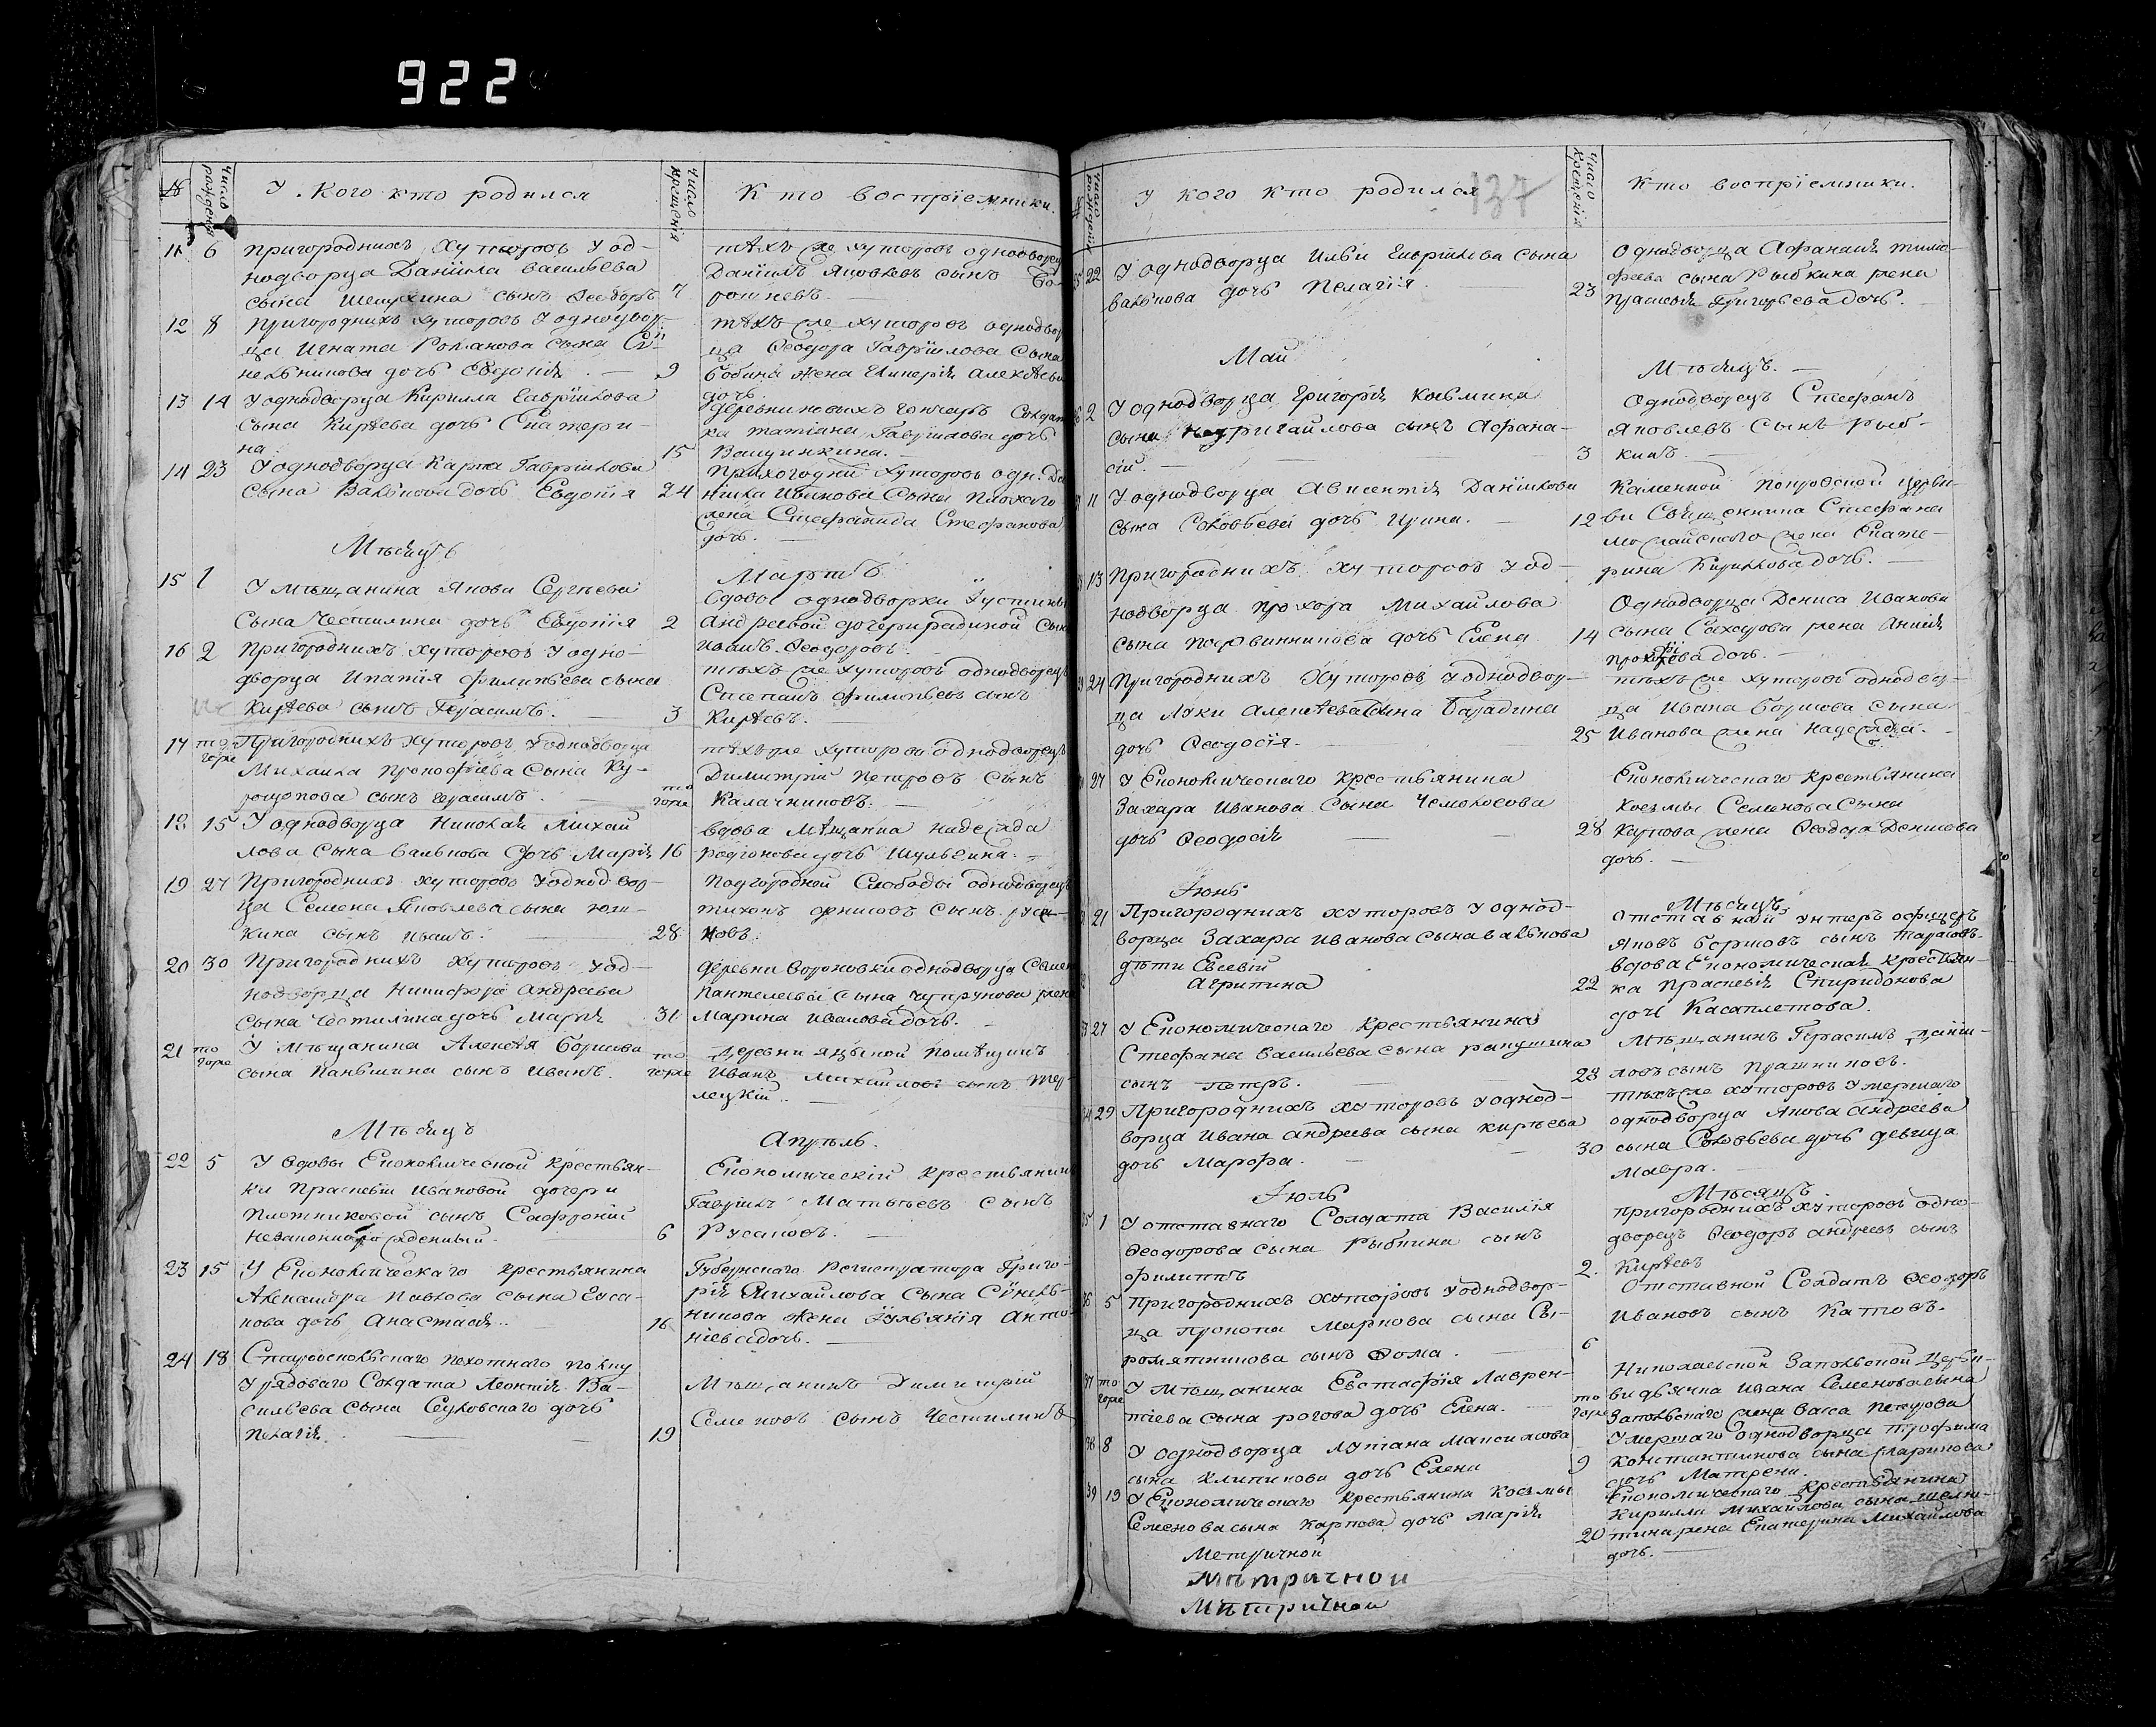 922
№
Число рождения
У кого кто родился
Число крещения
Кто воспріемники.
11 6 Пригороднихъ хуторовъ У од-
нодворца Даніила Васильева
сына Шещухина сынъ Ѳеодоръ 7
тѣхъ же хуторовъ однодворец
Даніилъ Яковлевъ сынъ Бо-
рошневъ.
12 8 Пригороднихъ хуторовъ У однодвор-
ца Игната Романова сына Си-
нельникова дочь Евдокія. 9
тѣхъ же хуторовъ однодвор
ца Ѳеодора Гаврилова сына
Бобина жена Гликерія Алексѣева
дочь.
13 14 У однодворца Кирилла Гаврилова
сына Кирѣева дочь Екатери-
на 15
деревни новыхъ гончаръ Солдат
ка Татіана Гаврилова дочь
Ващинкина.
14 23 У однодворца Карпа Гаврилова
сына Валькова дочь Евдокія 24
Пригородни хуторовъ одн. Да
ніила Иванова сына Плохаго
жена Стефанида Стефанова
дочь.
Мѣсяцъ
Мартъ
15 1 У мѣщанина Якова Сергѣева
сына Честилина дочь Евдокія 2
вдовы однодворки Іустины
Андреевой дочери родиной сын
Иванъ Ѳеодоровъ.
16 2 Пригороднихъ хуторовъ У одно-
дворца Ипатія Филипьева сына
Кирѣева сынъ Герасимъ. 3
тѣхъ же хуторовъ однодворецъ
Степанъ Филипьевъ сынъ
Кирѣевъ.
17 тогоже Пригороднихъ хуторовъ У однодворца
Михаила Прокофіева сына Ку-
рощопова сынъ Герасимъ. того же
тѣхъ же хуторовъ однодворецъ
Димитрій Петровъ сынъ
Калачниковъ.
18 15 У однодворца Николая Михай
лова сына Валькова дочь Марія 16
вдова мѣщанка надежда
родіонова дочь Шульгина.
19 27 Пригороднихъ хуторовъ У однодвор-
ца Семена Яковлева сына Юш-
кина сынъ Иванъ. 28
Подгородней Слободы однодворецъ
тихонъ Фписовъ сынъ руса-
ковъ.
20 30 Пригороднихъ хуторовъ У од-
нодворца Никифора Андреева
сына Честилина дочь Марія 31
деревни Вороновки однодворца Семен
Пантелеева сына Чупрунова жена
Марина Иванова дочь.
21 тогоже У Мѣщанина Алексѣя Борисова
сына Паньшина сынъ Иванъ. тогоже
деревни языкной Помѣщикъ
Иванъ Михайловъ сынъ Тер-
лецкій.
Мѣсяцъ
Апрѣль.
22 5 У вдовы Економической крестьян-
ки Праскевіи Ивановой дочери
Плотниковой сынъ Софроній
незаконнорожденный. 6
Економическій крестьянин
Гаврилъ Матвѣевъ сынъ
Русановъ.
23 15 У Економическаго крестьянина
Александра Павлова сына Руса-
нова дочь Анастасія. 16
Губернскаго Регистратора Григо-
рія Михайлова Сына Синель-
никова жена Іульянія Анто-
ніева дочь.
24 18 Старооскольскаго пехотнаго полку
У рядоваго Солдата Леонтія Ва-
сильева сына Сеуковскаго дочь
Пелагія. 19
Мѣщанинъ Димитрій
Семеновъ сынъ Честилинъ
137
Число рожденія
У кого кто родился
Число крещенія
Кто воспріемники.
22 У однодворца Ильи Гаврилова сына
Валькова дочь Пелагія. 23
Однодворца Афанасія тимо-
феева сына Рыбкина жена
Праскевія Григорьева дочь.
Май
Мѣсяцъ.
2 У однодворца Григорія Козьмина
сына Недригайлова сынъ Афана-
сій. 3
Однодворецъ Стефанъ
Яковлевъ сынъ Рыб-
кинъ.
11 У однодворца Авксентія Даніилова
сына Соловьева дочь Ирина. 12
Каменной Покровской церк-
ви Священника Стефана
Можайскаго жена Екате-
рина Кирилова дочь.
13 Пригороднихъ хуторовъ У од-
нодворца Прохора Михайлова
сына Посвинникова дочь Елена 14
Однодворца Дениса Иванова
сына Сахарова жена Анисія
Прохорова дочь.
24 Пригороднихъ хуторовъ У однодвор-
ца Луки Алексѣева сына Багадина
дочь Ѳеодосія. 25
тѣхъ же хуторовъ однодвор-
ца Ивана Борисова сына
Иванова жена Надежда.
27 У Економическаго Крестьянина
Захара Иванова сына Чемолосова
дочь Ѳеодосія 28
Економическаго крестьянина
Козмы Семенова сына
Карпова жена Ѳеодора Денисова
дочь.
Іюнь
Мѣсяцъ
21 Пригороднихъ хуторовъ У однод-
ворца Захара Иванова сына Валькова
дѣти Евсевій
Агрипина 22
Отставной унтеръ офицеръ
Яковъ Борисовъ сынъ Тарасовъ.
вдова Економическая крестьян-
ка Праскевія Спиридонова
дочь Касаплетова.
27 У Економическаго крестьянина
Стефана Васильева сына рапушина
сынъ петръ. 28
Мѣщанинъ Герасимъ Даніи-
ловъ сынъ Пряшниковъ.
29 Пригороднихъ хуторовъ У однод-
ворца Ивана Андреева сына Кирѣева
дочь Марфа. 30
тѣхъ же хуторовъ Умершаго
однодворца Якова Андреева
сына Соловьева дочь девица
Мавра.
Іюль
Мѣсяцъ
1 У отставнаго Солдата Василія
Ѳеодорова сына Рыбкина сынъ
Филиппъ 2.
Пригороднихъ хуторовъ одно-
дворецъ Ѳеодоръ Андреевъ сынъ
Кирѣевъ
36 5 Пригороднихъ хуторовъ У однодвор-
ца Прокопа Маркова сына Сы-
ромятникова сынъ Ѳома. 6
Отставной Солдатъ Ѳеодоръ
Ивановъ сынъ Катовъ.
37 тогоже У Мѣщанина Евстафія Лаврен-
тіева сына рогова дочь Елена. тогоже
Николаевской Запольской Церк-
ви дьячка Ивана Семенова сына
Запольскаго жена Васса Петрова
38 8 У однодворца Лукіана Максимова
сына Клипикова дочь Елена 9
Умершаго однодворца трофима
Константинова сына Марикова
дочь Матрена.
39 19 У Економическаго Крестьянина Козьмы
Семенова сына Карпова дочь Марія 20
Економическаго крестьянина
Кирилла Михайлова сына Шелю-
тина жена Екатерина Михайлова
дочь.
Метричной
Мѣтричной
Мѣтричной